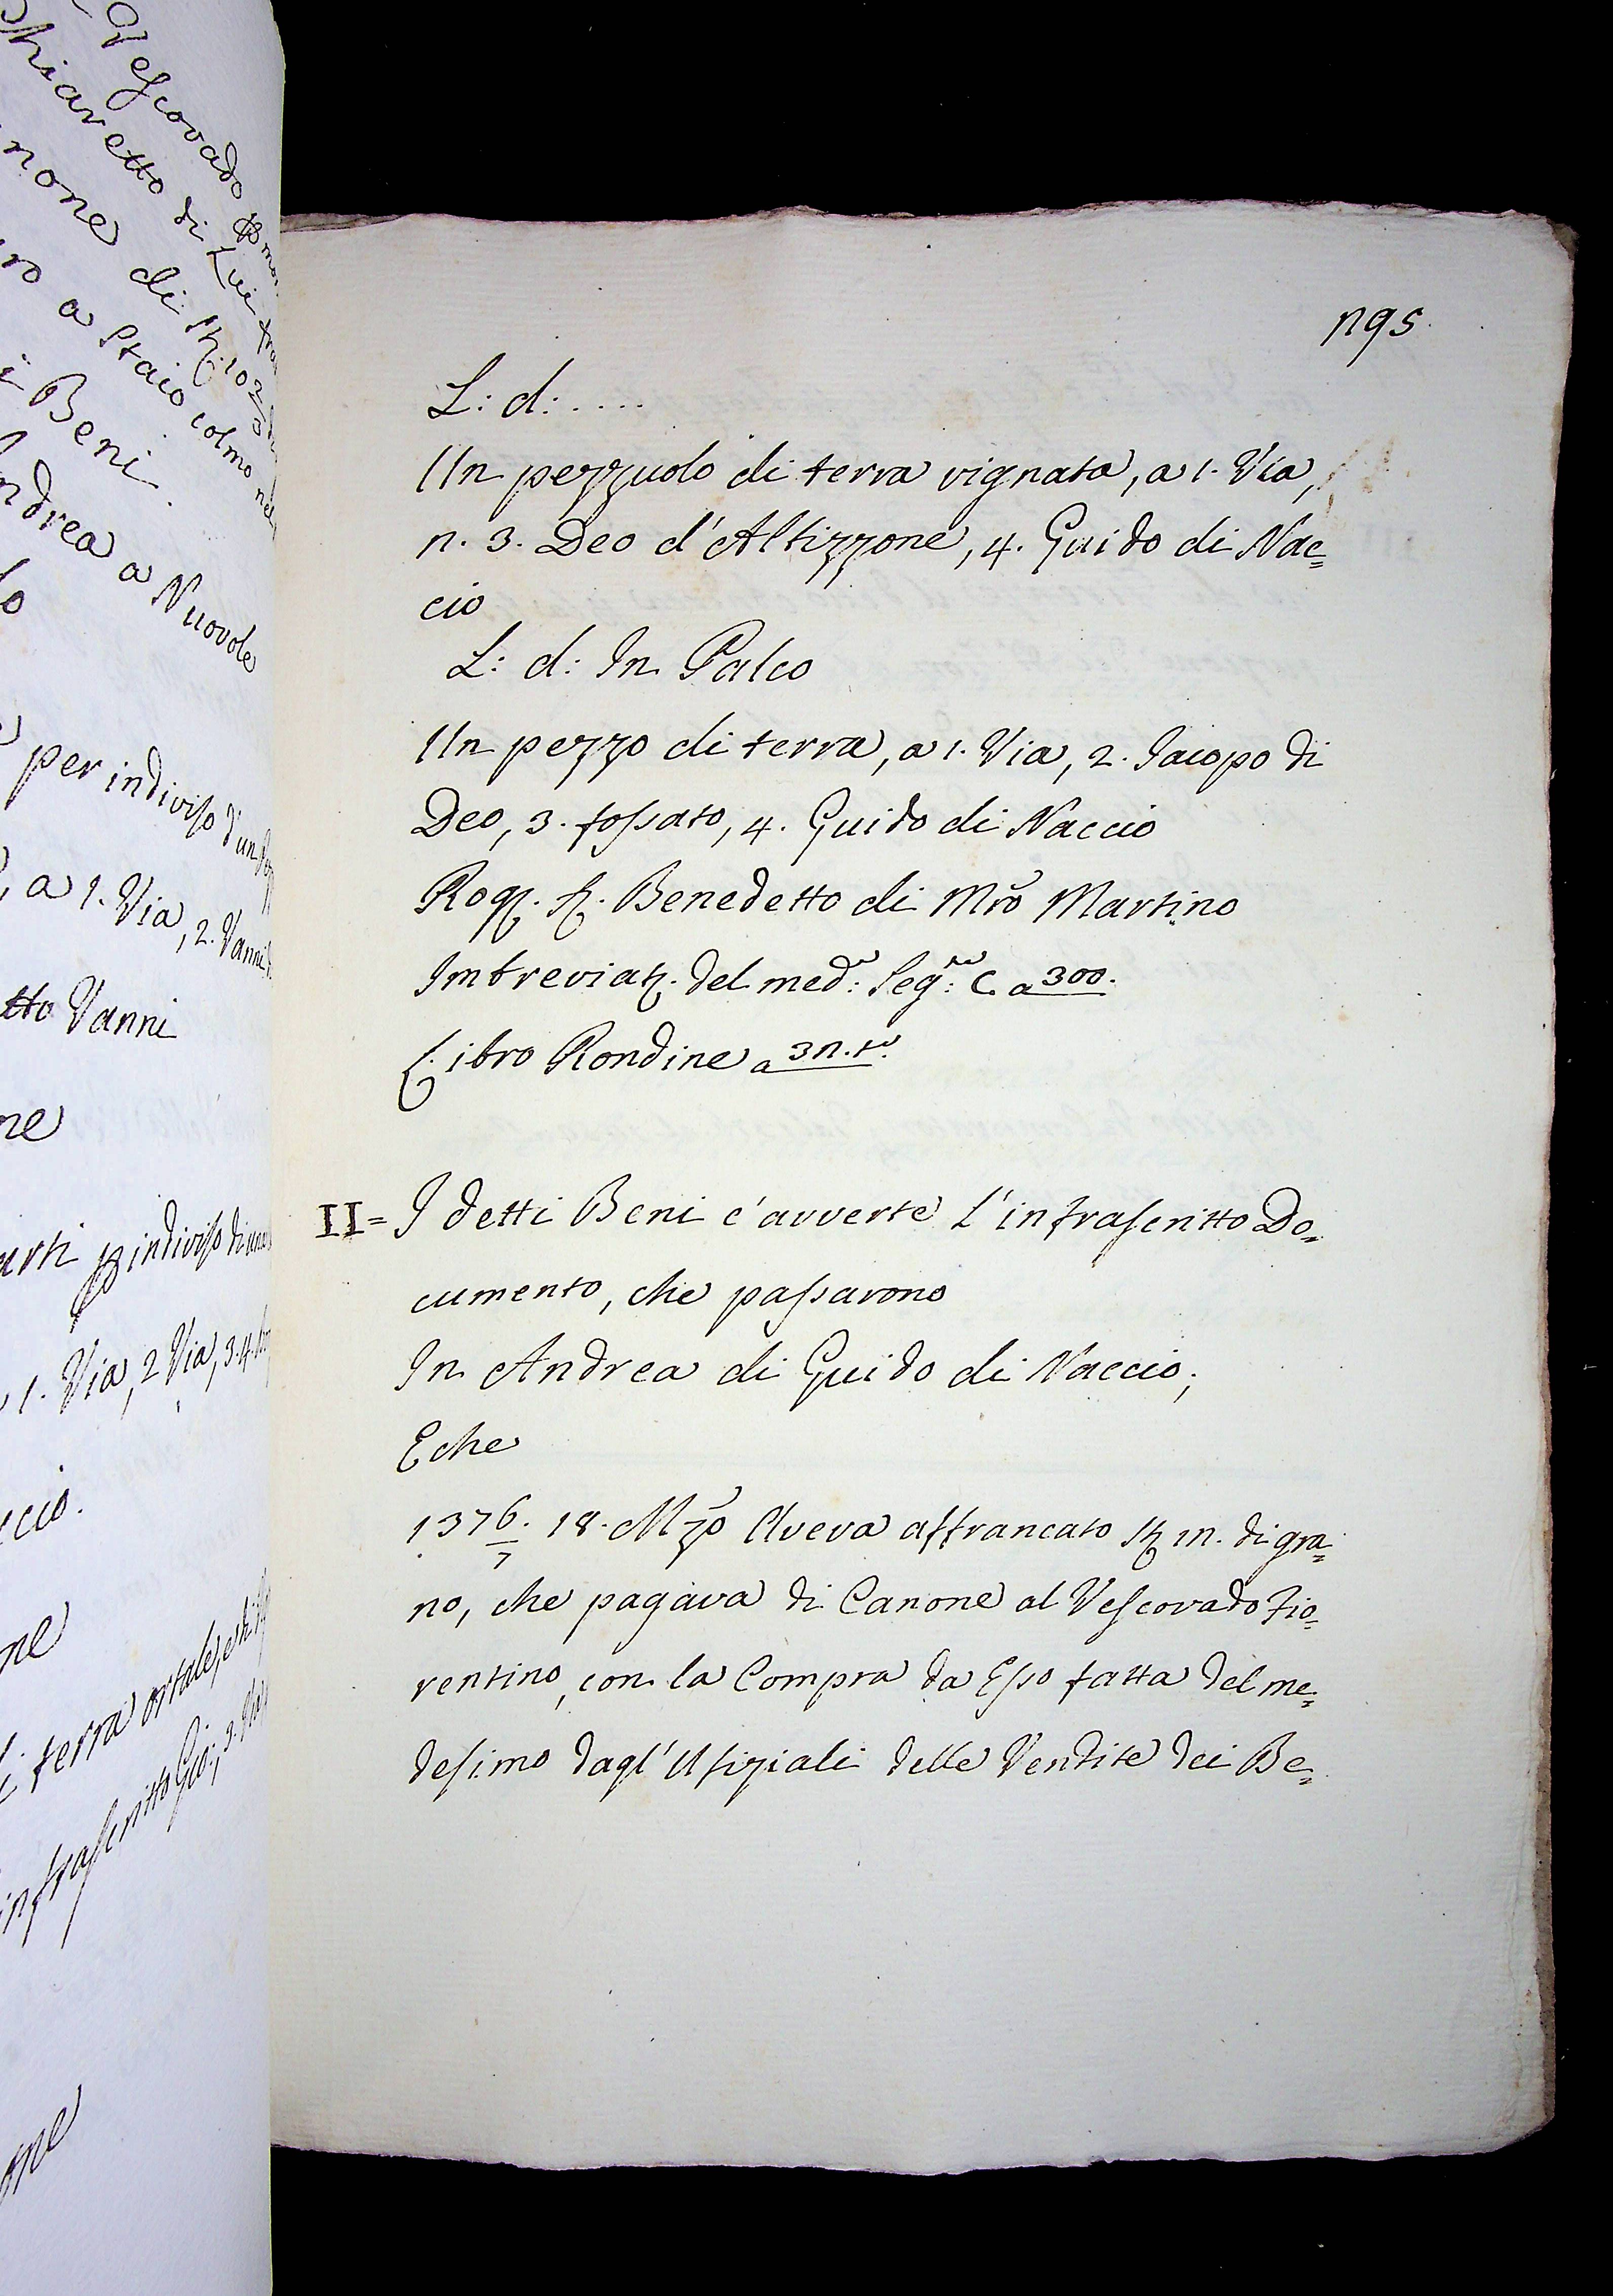 Vescovado
Chiaretto di Lui
none di St. 10
ro a Staio colmo nel
i Beni.
ndrea a Nuovole
lo
per indiviso d'un
, a 1. Via, 2. Vanni
tto Vanni
ne
arti p indiviso di una
1. Via, 2 Via, 3. 4.
ccio.
ne
i terra ortale, e
infrascritto Gio:, 3.
one
295.
L: d: ....
Un pezzuolo di terra vignata, a 1. Via,
2. 3. Deo d'Altizzone, 4. Guido di Nac=
cio
L: d: In Palco
Un pezzo di terra, a 1. Via, 2. Jacopo di
Deo, 3. fossato, 4. Guido di Naccio
Rog. S. Benedetto di Mro Martino
Imbreviat. del med.: Seg.: C. a 300.
Libro Rondine a 32. t.
II= I detti Beni c'avverte l'infrascritto Do=
cumento, che passarono
In Andrea di Guido di Naccio;
E che
1376/7. 18. Mzo Aveva affrancato St 12. di gra=
no, che pagava di Canone al Vescovado Fio=
rentino, con la Compra da Esso fatta del me=
desimo dagl'Ufiziali delle Vendite dei Be=